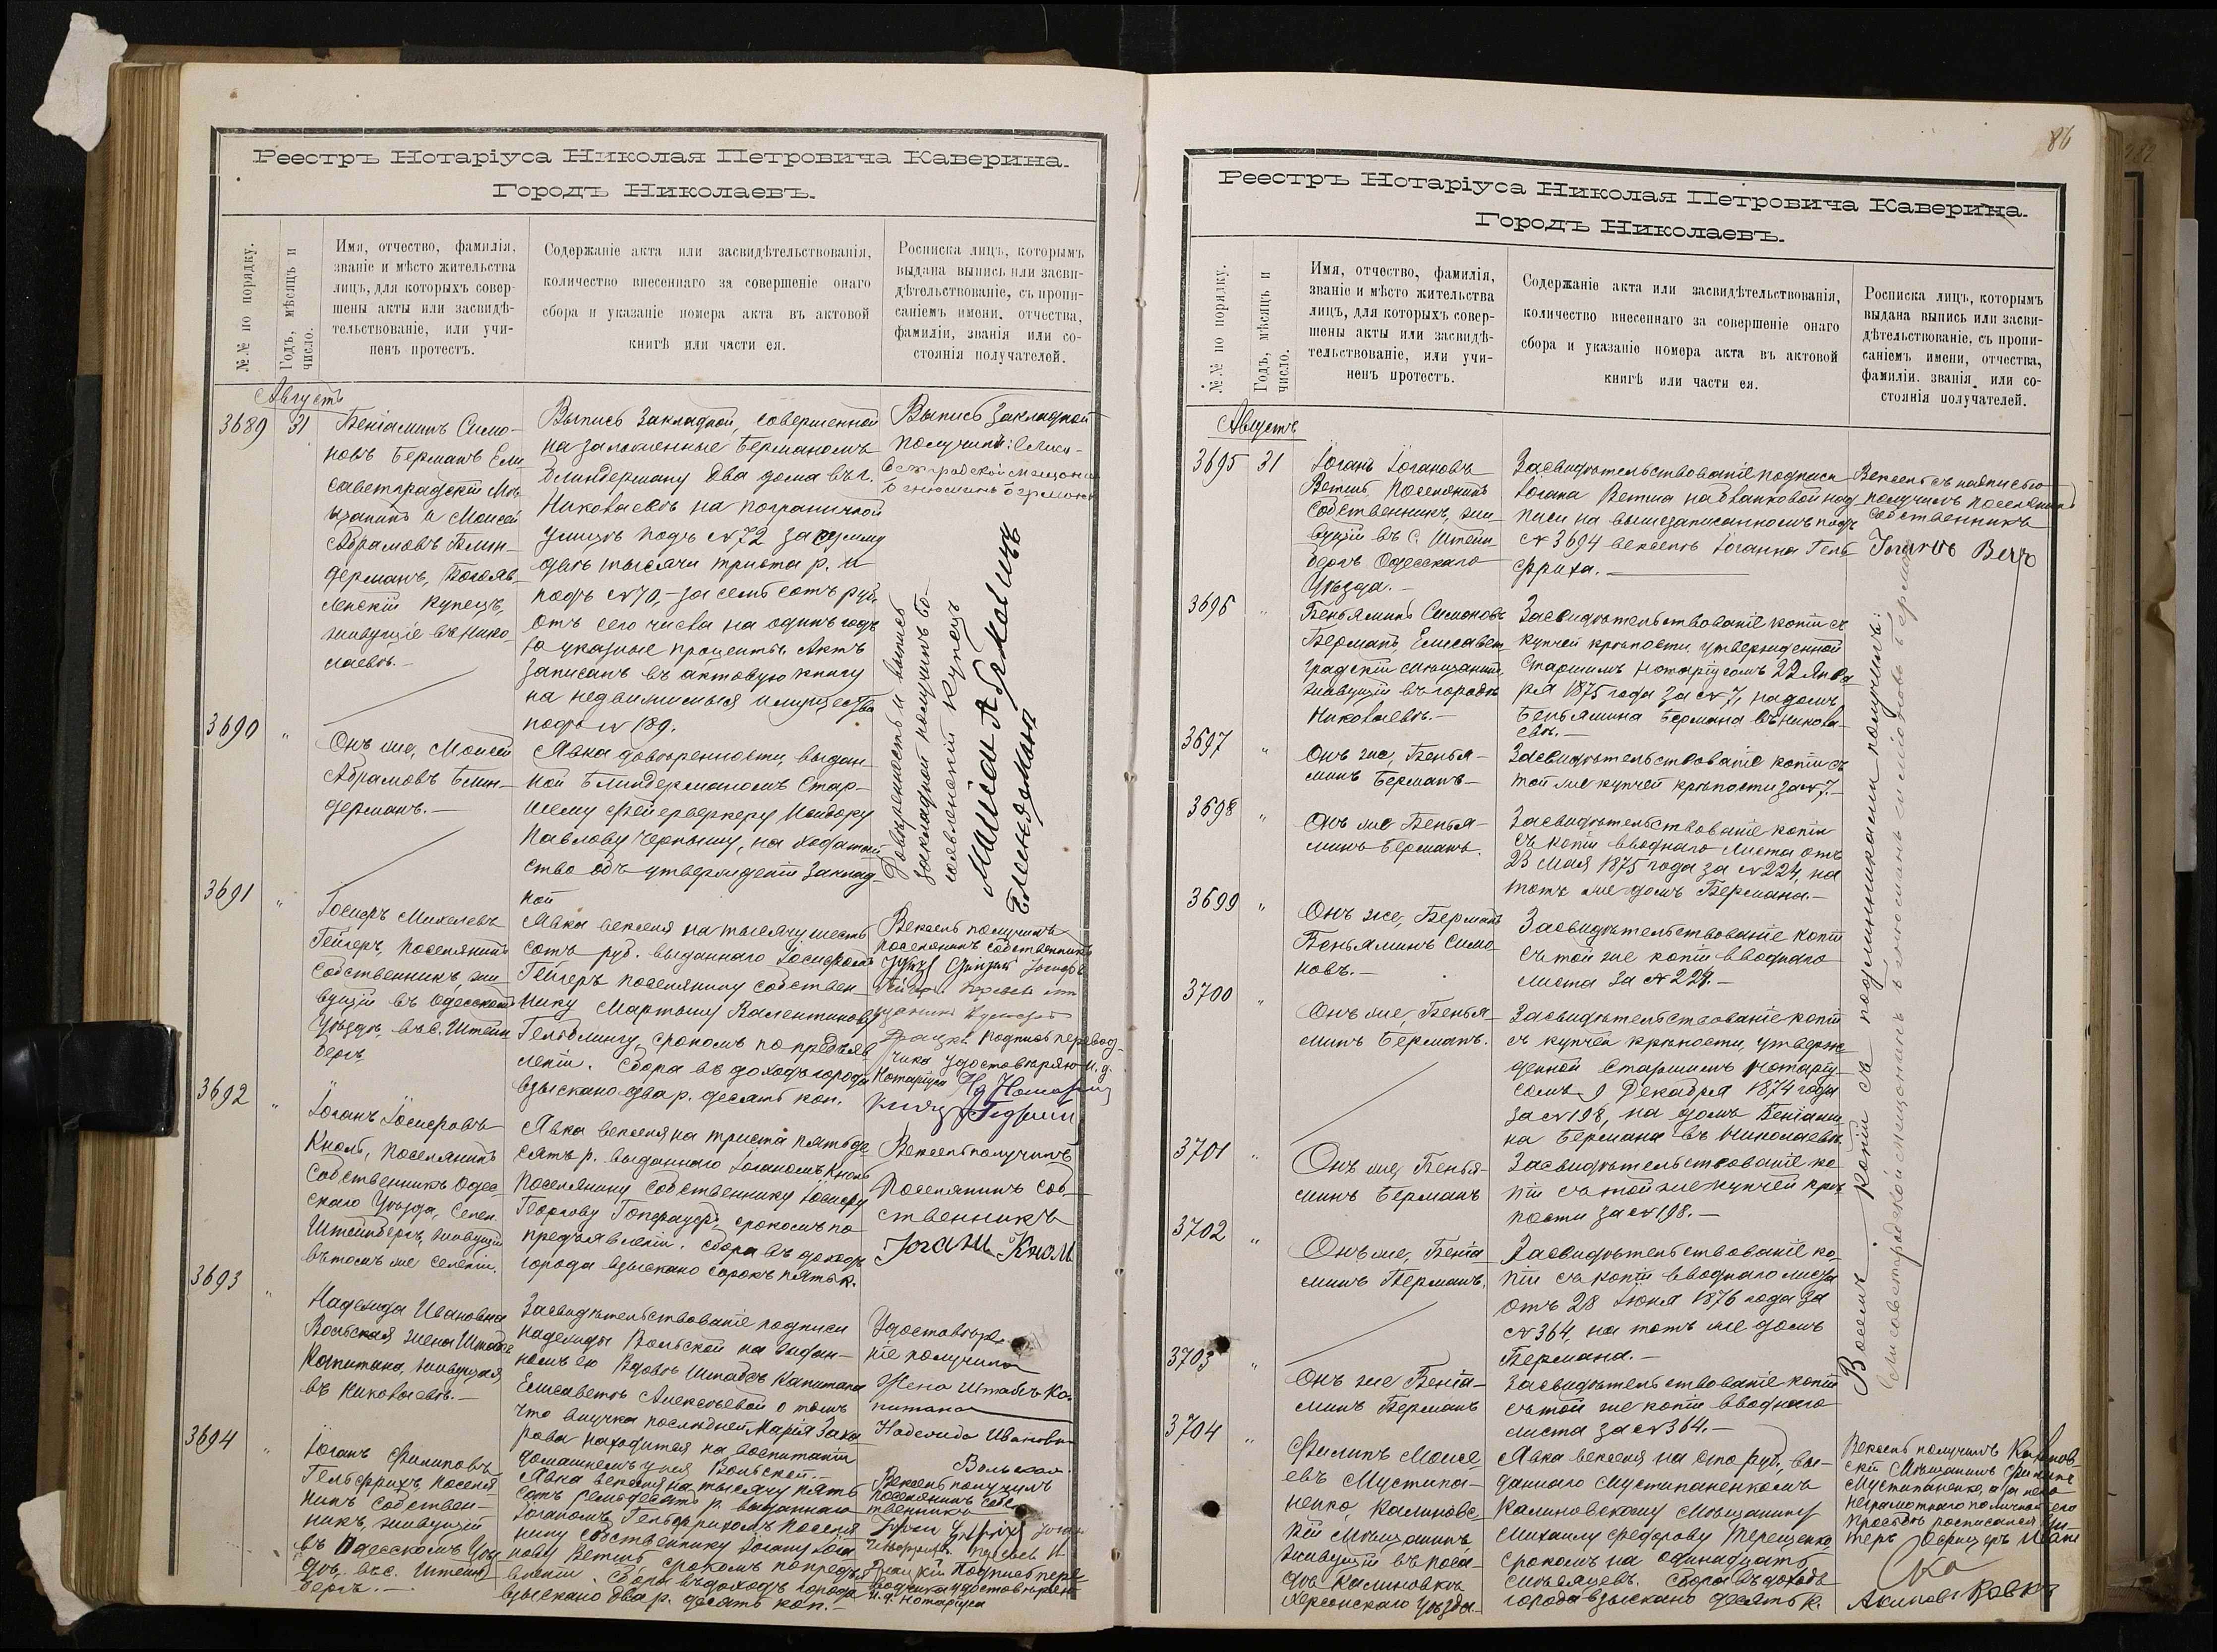 Реестръ Нотаріуса Николая Петровича Каверина.
Городъ Николаевъ.
№№ по порядку.
Годъ, мѣсяцъ и
число.
Имя, отчество, фамилія,
званіе и мѣсто жительства
лицъ, для которыхъ совер-
шены акты или засвидѣ-
тельствованіе, или учи-
ненъ протестъ.
Содержаніе акта или засвидѣтельствованія,
количество внесеннаго за совершеніе онаго
сбора и указаніе номера акта въ актовой
книгѣ или части ея.
Росписка лицъ, которымъ
выдана выпись или засви-
дѣтельствованіе, съ пропи-
саніемъ имени, отчества,
фамиліи, званія или со-
стоянія получателей.
Августъ
3689 31
Веніаминъ Симо-
новъ Берманъ Ели
саветградскій Мѣ
щанинъ и Моисей
Абрамовъ Блин-
дерманъ, Богояв-
ленскій купецъ,
живущіе въ Нико-
лаевѣ.—
Выпись Закладной, совершенной
на заложенные Берманомъ
Блиндерману два дома въ г.
Николаевѣ на пограничной
улицѣ подъ № 72 за сумму
двѣ тысячи триста р. и
подъ № 70,— за семь сотъ руб.
отъ сего числа на одинъ годъ
за указные проценты. Актъ
записанъ въ актовую книгу
на недвижимыя имущества
подъ № 189.
Выпись Закладной
получилъ: Елиса-
ветградской мещанинъ
Бенюминъ Берманъ
3690 "
Онъ же, Моисей
Абрамовъ Блин-
дерманъ.—
Явка довѣренности, выдан-
ной Блиндерманомъ Стар-
шему фейерверкеру
Павлову Чернышу, на ходатай
ство объ утвержденіи Заклад-
ной
Довѣренность и выпись
закладной получилъ Бо-
гоявленскій купецъ
3691 "
Іосифъ Михелевъ
Гейгеръ, поселянинъ
собственникъ, жи
вущій въ Одесскомъ
Уѣздѣ, въ с. Штейн
бергъ
Явка векселя на тысячу шесть
сотъ руб. выданнаго Іосифомъ
Гейгеръ поселянину собствен-
нику Мартыну Валентинову
Гельблингу, срокомъ по предъяв
леніи. Сбора въ доходъ города
взыскано два р. десять коп.
Вексель получилъ
поселянинъ собственникъ
подпись перевод-
чика удостовѣряю И.д.
Нотаріуса
3692 "
Іоганъ Іосифовъ
Кноль, поселянинъ
Собственникъ Одес-
скаго Уѣзда, Селен.
Штейнбергъ, живущій
въ томъ же селеніи.
Явка векселя на триста пятьде
сятъ р. выданнаго Іоганомъ Кноль
поселянину собственнику Іосифу
Георгову Гопфауфъ, срокомъ по
предъявленіи. Сбора въ доходъ
города взыскано сорокъ пять к.
Вексель получилъ
Поселянинъ Соб-
ственникъ
3693 "
Надежда Ивановна
Вольская жена Штабсъ
Капитана, живущая
въ Николаевѣ.—
Засвидѣтельствованіе подписи
Надежды Вольской на
номъ ею Вдовѣ Штабсъ Капитана
Елисаветѣ Алексѣевой о томъ
что внучка послѣдней Марія Заха
рова находится на воспитаніи
домашнемъ у нея Вольской.—
Удостовѣре
ніе получила
Жена Штабсъ Ка-
питана
Надежда Ивановна
Вольская.
3694 "
Іоганъ Филиповъ
Гельффрихъ, поселя
нинъ Собствен-
никъ, живущій
въ Одесскомъ Уѣз
дѣ, въ с. Штейн
бергъ.—
Явка векселя на тысячу пять
сотъ семьдесятъ р. выданнаго
Іоганомъ Гельффрихомъ поселя
нину собственнику Іогану Іога
нову Ветшъ, срокомъ по предъяв
леніи. Сбора въ доходъ города
взыскано два р. десять коп.—
Вексель получилъ
поселянинъ собс
твенникъ
Подпись пере
водчика удостовѣряю
И.д. Нотаріуса
86
Реестръ Нотаріуса Николая Петровича Каверина.
Городъ Николаевъ.
№№ по порядку.
Годъ, мѣсяцъ и
число.
Имя, отчество, фамилія,
званіе и мѣсто жительства
лицъ, для которыхъ совер-
шены акты или засвидѣ-
тельствованіе, или учи-
ненъ протестъ.
Содержаніе акта или засвидѣтельствованія,
количество внесеннаго за совершеніе онаго
сбора и указаніе номера акта въ актовой
книгѣ или части ея.
Росписка лицъ, которымъ
выдана выпись или засви-
дѣтельствованіе, съ пропи-
саніемъ имени, отчества,
фамиліи, званія или со-
стоянія получателей.
Августъ
3695 31
Іоганъ Іогановъ
Ветшъ, Поселянинъ
Собственникъ, жи-
вущій въ С. Штейн
бергъ Одесскаго
Уѣзда.—
Засвидѣтельствованіе подписи
Іогана Ветша на бланковой над
писи на вышезаписанномъ подъ
№ 3694 векселѣ Іоганна Гель
ффриха.—
Вексель съ надписью
получилъ поселянинъ
собственникъ
3696 "
Беньяминъ Симоновъ
Берманъ, Елисавет
градскій Мѣщанинъ,
живущій въ городѣ
Николаевѣ.—
Засвидѣтельствованіе копіи съ
купчей крѣпости, утвержденной
Старшимъ Нотаріусомъ 22 Янва
ря 1875 года за № 7, на домъ
Беньямина Бермана въ Никола-
евѣ.—
3697 "
Онъ же, Бенья-
минъ Берманъ—
Засвидѣтельствованіе копіи съ
той же купчей крѣпости за № 7.—
3698 "
Онъ же Бенья-
минъ Берманъ.
Засвидѣтельствованіе копіи
съ копіи вводнаго листа отъ
23 Мая 1875 года за № 224, на
тотъ же домъ Бермана.—
3699 "
Онъ же, Берманъ
Беньяминъ Симо-
новъ.—
Засвидѣтельствованіе копіи
съ той же копіи вводнаго
листа за № 224.—
3700 "
Онъ же, Бенья-
минъ Берманъ.
Засвидѣтельствованіе копіи
съ купчей крѣпости, утверж
денной Старшимъ Нотаріу-
сомъ 9 Декабря 1874 года
за № 198, на домъ Веніами
на Бермана въ Николаевѣ.
3701 "
Онъ же, Бенья-
минъ Берманъ
Засвидѣтельствованіе ко
піи съ той же купчей крѣ
пости за № 198.—
3702 "
Онъ же, Бенія
минъ Берманъ.
Засвидѣтельствованіе ко
піи съ копіи вводнаго листа
отъ 28 Іюня 1876 года за
№ 364, на тотъ же домъ
Бермана.—
3703 "
Онъ же Веніа-
минъ Берманъ
Засвидѣтельствованіе копіи
съ той же копіи вводнаго
листа за № 364.—
Восемь копій съ подлинниками получилъ:
Елисаветградской мещанинъ Бенюминъ Симоновъ Берманъ
3704 "
Филипъ Моисе
евъ Мустипа-
ненко, Калиновс
кій Мѣщанинъ,
живущій въ поса
дѣ Калиновкѣ
Херсонскаго Уѣзда.
Явка векселя на сто руб., вы-
даннаго Мустипаненкомъ
Калиновскому Мѣщанину
Михаилу Федорову Терещенко,
срокомъ на одинадцать
мѣсяцевъ. Сбора въ доходъ
города взыскано десять к.
Вексель получилъ Калинов-
скій Мѣщанинъ Филипъ
Мустипаненко, а за него
неграмотнаго по личной его
просьбѣ росписался